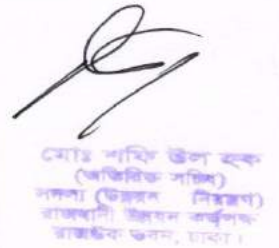 মোঃ শফি উল হক
(অতিরিক্ত সচিব)
সদস্য (উন্নয়ন নিয়ন্ত্রণ)
রাজধানী উন্নয়ন কর্তৃপক্ষ
রাজউক ভবন, ঢাকা।